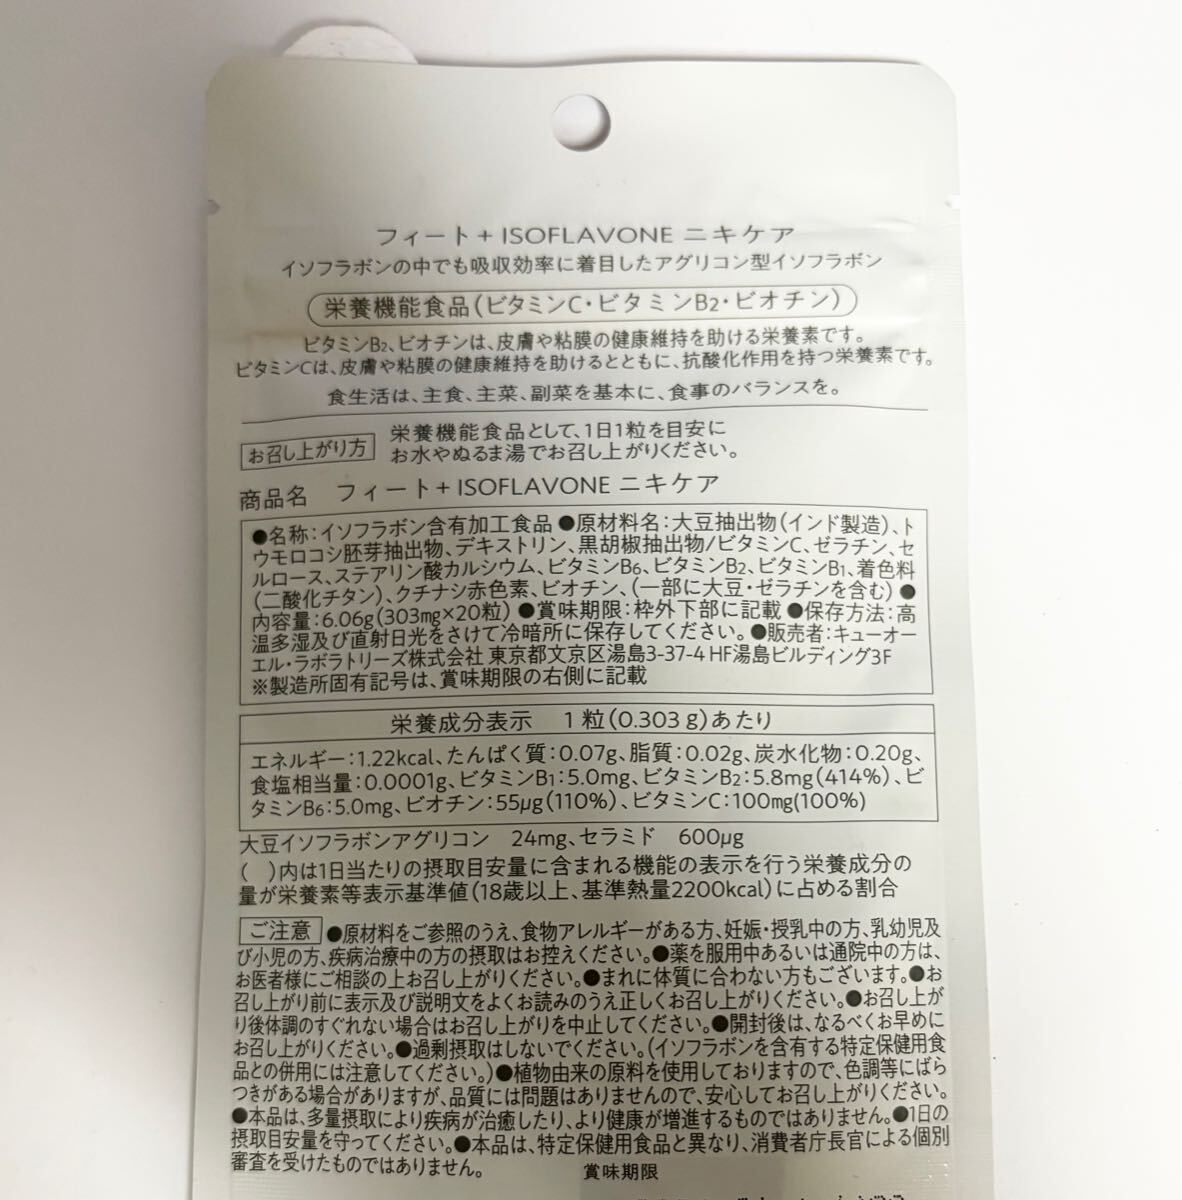 フィート+ ISOFLAVONE ニキケア
イソフラボンの中でも吸収効率に着目したアグリコン型イソフラボン
栄養機能食品(ビタミンC・ビタミンB2・ビオチン)
ビタミンB2、ビオチンは、皮膚や粘膜の健康維持を助ける栄養素です。
ビタミンCは、皮膚や粘膜の健康維持を助けるとともに、抗酸化作用を持つ栄養素です。
食生活は、主食、主菜、副菜を基本に、食事のバランスを。
お召し上がり方
栄養機能食品として、1日1粒を目安に
お水やぬるま湯でお召し上がりください。
商品名 フィート+ ISOFLAVONE ニキケア
●名称:イソフラボン含有加工食品 ●原材料名:大豆抽出物(インド製造)、ト
ウモロコシ胚芽抽出物、デキストリン、黒胡椒抽出物/ビタミンC、ゼラチン、セ
ルロース、ステアリン酸カルシウム、ビタミンB6、ビタミンB2、ビタミンB1、着色料
(二酸化チタン)、クチナシ赤色素、ビオチン、(一部に大豆・ゼラチンを含む) ●
内容量:6.06g(303mg×20粒) ●賞味期限:枠外下部に記載 ●保存方法:高
温多湿及び直射日光をさけて冷暗所に保存してください。●販売者:キューオー
エル・ラボラトリーズ株式会社 東京都文京区湯島3-37-4 HF湯島ビルディング3F
※製造所固有記号は、賞味期限の右側に記載
栄養成分表示 1粒(0.303g)あたり
エネルギー:1.22kcal、たんぱく質:0.07g、脂質:0.02g、炭水化物:0.20g、
食塩相当量:0.0001g、ビタミンB1:5.0mg、ビタミンB2:5.8mg(414%)、ビ
タミンB6:5.0mg、ビオチン:55μg(110%)、ビタミンC:100mg(100%)
大豆イソフラボンアグリコン 24mg、セラミド 600μg
( )内は1日当たりの摂取目安量に含まれる機能の表示を行う栄養成分の
量が栄養素等表示基準値(18歳以上、基準熱量2200kcal)に占める割合
ご注意 ●原材料をご参照のうえ、食物アレルギーがある方、妊娠・授乳中の方、乳幼児及
び小児の方、疾病治療中の方の摂取はお控えください。●薬を服用中あるいは通院中の方は、
お医者様にご相談の上お召し上がりください。●まれに体質に合わない方もございます。●お
召し上がり前に表示及び説明文をよくお読みのうえ正しくお召し上がりください。●お召し上が
り後体調のすぐれない場合はお召し上がりを中止してください。●開封後は、なるべくお早めに
お召し上がりください。●過剰摂取はしないでください。(イソフラボンを含有する特定保健用食
品との併用には注意してください。)●植物由来の原料を使用しておりますので、色調等にばら
つきがある場合がありますが、品質には問題はありませんので、安心してお召し上がりください。
●本品は、多量摂取により疾病が治癒したり、より健康が増進するものではありません。●1日の
摂取目安量を守ってください。●本品は、特定保健用食品と異なり、消費者庁長官による個別
審査を受けたものではありません。 賞味期限